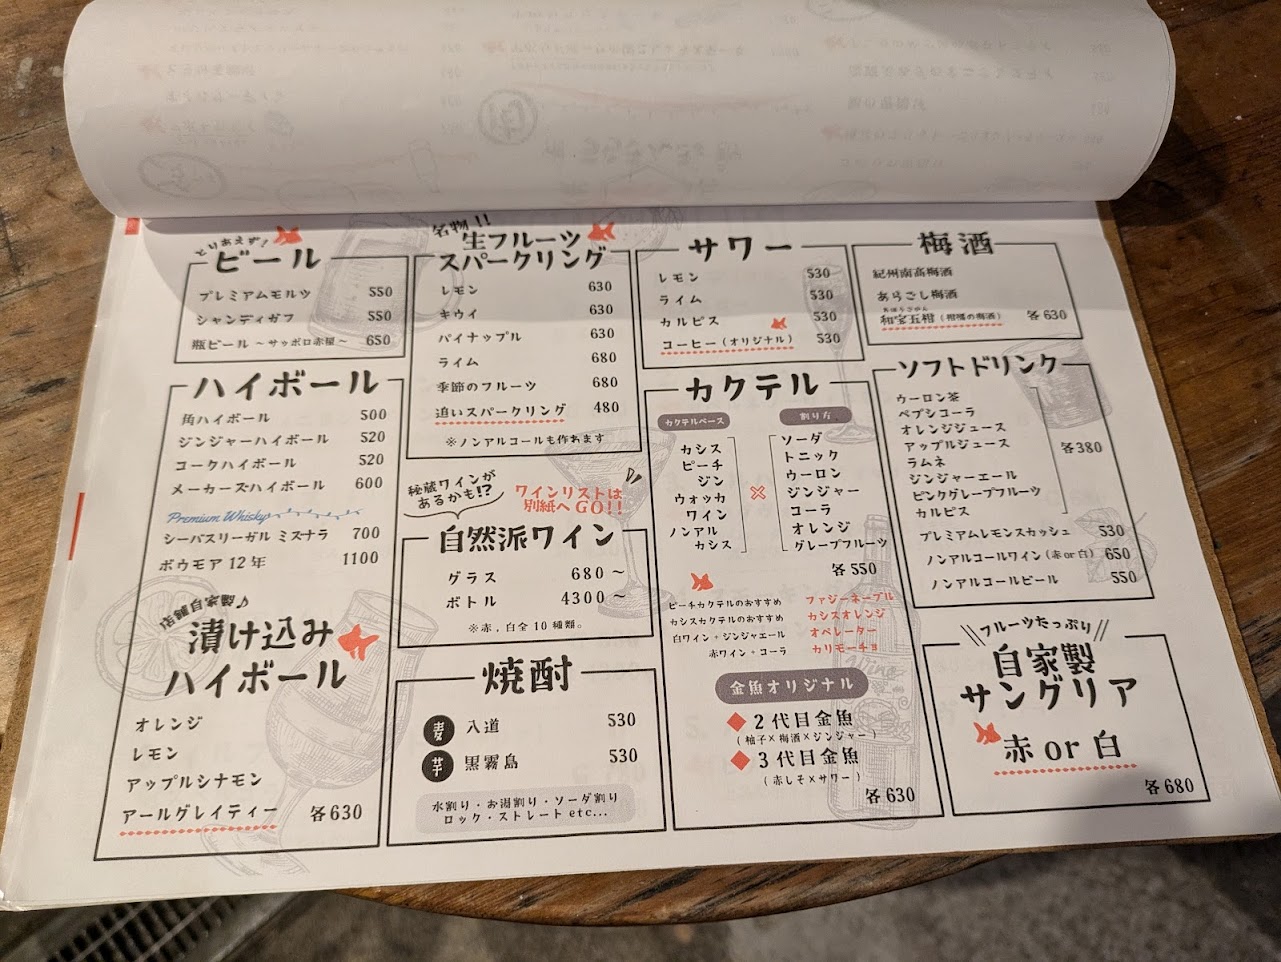 とりあえず!
ビール
プレミアムモルツ 550
シャンディガフ 550
瓶ビール ～サッポロ赤星～ 650
ハイボール
角ハイボール 500
ジンジャーハイボール 520
コークハイボール 520
メーカーズハイボール 600
Premium Whisky
シーバスリーガル ミズナラ 700
ボウモア 12年 1100
店舗自家製
漬け込み
ハイボール
オレンジ
レモン
アップルシナモン
アールグレイティー 各630
名物!!
生フルーツ
スパークリング
レモン 630
キウイ 630
パイナップル 630
ライム 680
季節のフルーツ 680
追いスパークリング 480
※ノンアルコールも作れます
秘蔵ワインが
あるかも!?
ワインリストは
別紙へGO!!
自然派ワイン
グラス 680～
ボトル 4300～
※赤,白全10種類。
焼酎
麦 入道 530
芋 黒霧島 530
水割り・お湯割り・ソーダ割り
ロック・ストレート etc...
サワー
レモン 530
ライム 530
カルピス 530
コーヒー(オリジナル) 530
カクテル
カクテルベース
カシス
ピーチ
ジン
ウォッカ
ワイン
ノンアル
カシス
×
割り方
ソーダ
トニック
ウーロン
ジンジャー
コーラ
オレンジ
グレープフルーツ
各550
ピーチカクテルのおすすめ ファジーネーブル
カシスカクテルのおすすめ カシスオレンジ
白ワイン+ジンジャエール オペレーター
赤ワイン+コーラ カリモーチョ
金魚オリジナル
2代目金魚
(柚子×梅酒×ジンジャー)
3代目金魚
(赤しそ×サワー)
各630
梅酒
紀州南高梅酒
あらごし梅酒
和宝五柑(柑橘の梅酒) 各630
ソフトドリンク
ウーロン茶
ペプシコーラ
オレンジジュース
アップルジュース
ラムネ
ジンジャーエール
ピンクグレープフルーツ
カルピス
各380
プレミアムレモンスカッシュ 530
ノンアルコールワイン(赤or白) 650
ノンアルコールビール 550
フルーツたっぷり
自家製
サングリア
赤 or 白
各680